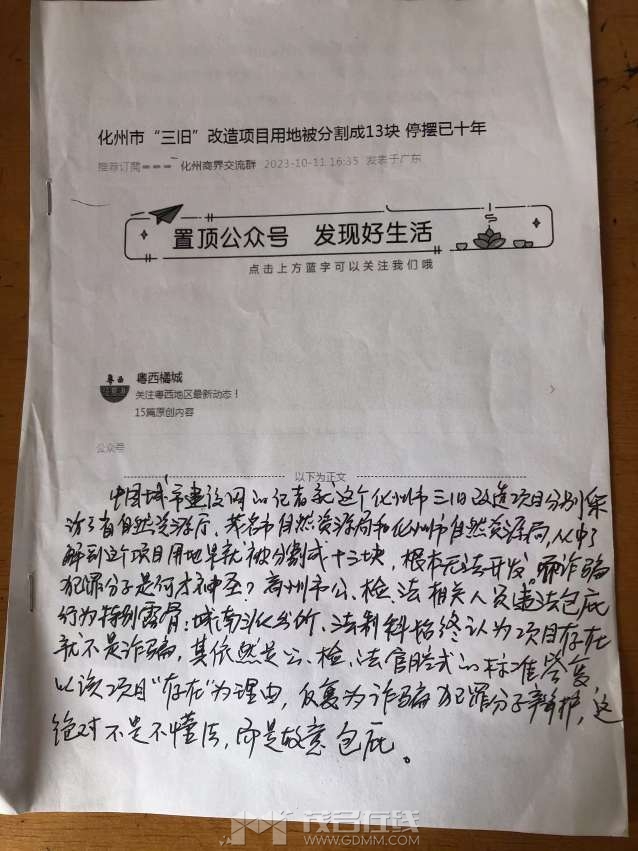 化州市“三旧”改造项目用地被分割成13块 停摆已十年
推荐订阅 化州商界交流群 2023-10-11 16:35 发表于广东
置顶公众号 发现好生活
点击上方蓝字可以关注我们哦
粤西
粤西橘城
关注粤西地区最新动态！
15篇原创内容
公众号
以下为正文
中国城市建设网的记者就这个化州市三旧改造项目分别采
访了省自然资源厅、茂名市自然资源局和化州市自然资源局，从中了
解到这个项目用地早就被分割成十三块，根本无法开发。而诈骗
犯罪分子是何方神圣？高州市公、检、法相关人员违法包庇
行为特别露骨：城南派出所、法制科始终认为项目存在
就不是诈骗，其依然是公、检、法官腔式的标准答复，
以该项目“存在”为理由，反复为诈骗犯罪分子辩护，这
绝对不是不懂法，而是故意包庇。
茂名在线
WWW.GDMM.COM